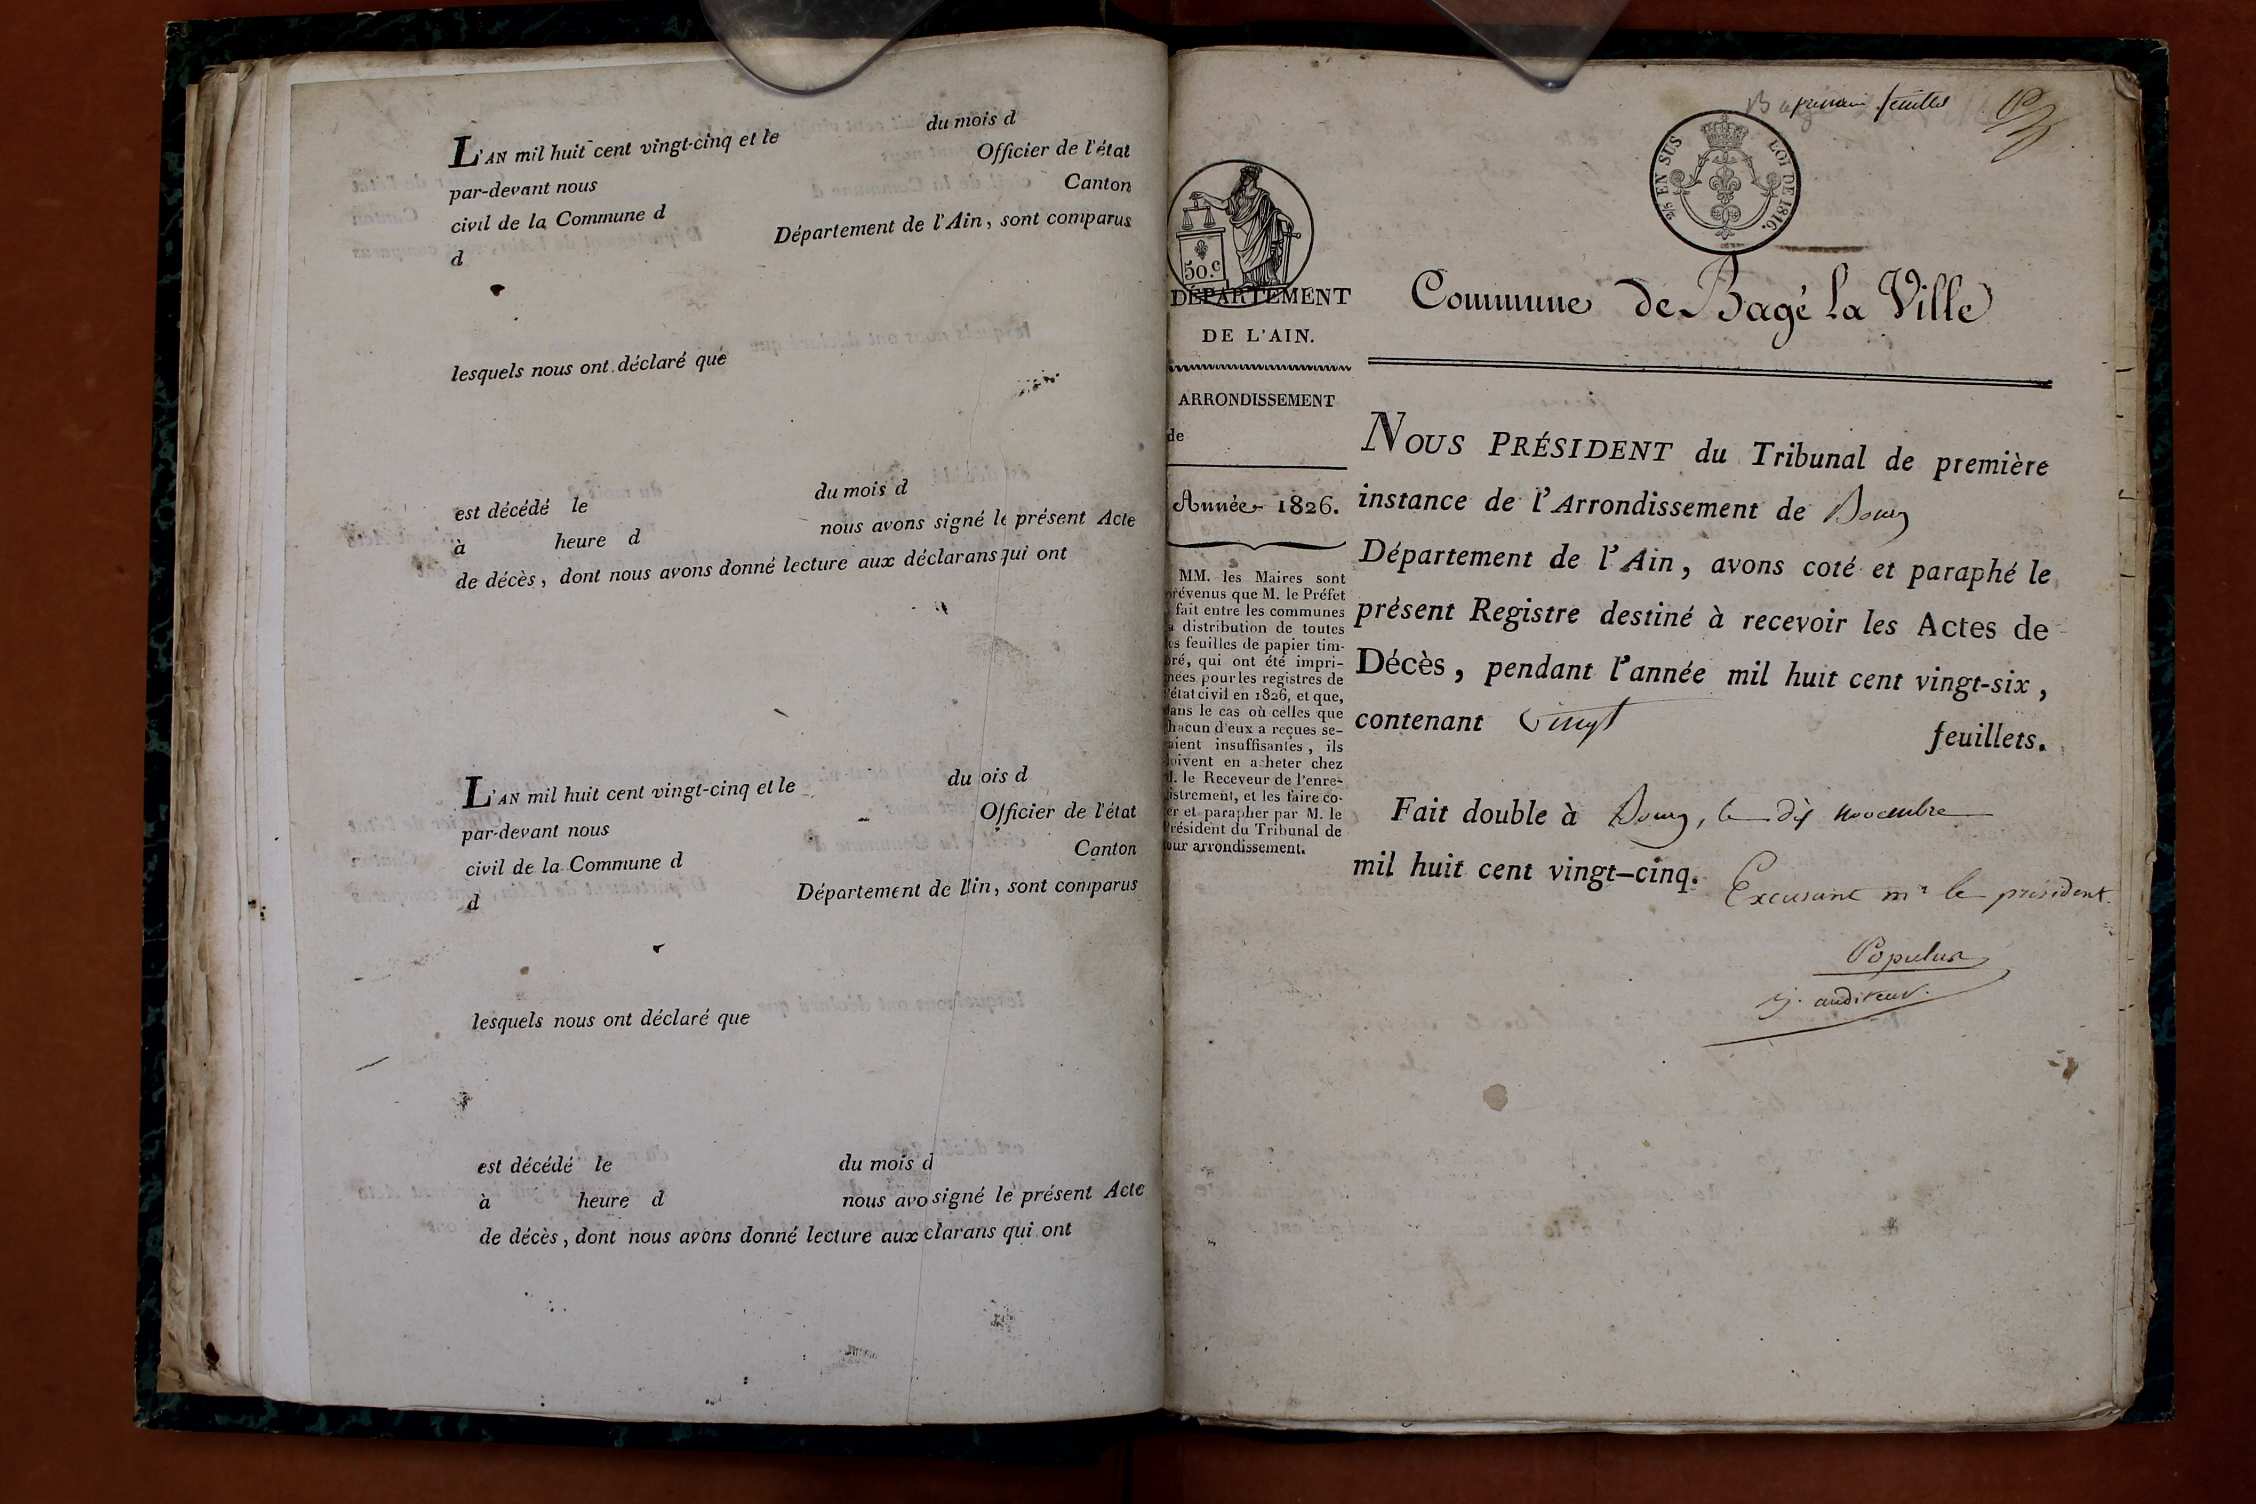 du mois d
L'AN mil huit cent vingt-cinq et le
Officier de l'état
par-devant nous
Canton
civil de la Commune d
Département de l'Ain, sont comparus
d
lesquels nous ont déclaré que
est décédé le du mois d
à heure d nous avons signé le présent Acte
de décès, dont nous avons donné lecture aux déclarans qui ont
L'AN mil huit cent vingt-cinq et le du ois d
par-devant nous Officier de l'état
civil de la Commune d Canton
d Département de l'in, sont comparus
lesquels nous ont déclaré que
est décédé le du mois d
à heure d nous avo signé le présent Acte
de décès, dont nous avons donné lecture aux clarans qui ont
feuillet
2/5 EN SUS LOI DE 1816.
50.c
DÉPARTEMENT
DE L'AIN.
ARRONDISSEMENT
de
Année 1826.
MM. les Maires sont
prévenus que M. le Préfet
fait entre les communes
la distribution de toutes
les feuilles de papier tim-
bré, qui ont été impri-
mées pour les registres de
l'état civil en 1826, et que,
dans le cas où celles que
chacun d'eux a reçues se-
raient insuffisantes, ils
doivent en acheter chez
M. le Receveur de l'enre-
gistrement, et les faire co-
ter et parapher par M. le
Président du Tribunal de
leur arrondissement.
Commune de Bagé la Ville
NOUS PRÉSIDENT du Tribunal de première
instance de l'Arrondissement de Bourg
Département de l'Ain, avons coté et paraphé le
présent Registre destiné à recevoir les Actes de
Décès, pendant l'année mil huit cent vingt-six,
contenant Vingt feuillets.
Fait double à Bourg, le dix novembre
mil huit cent vingt-cinq.
Excusant mr le président
Populus
j. auditeur.